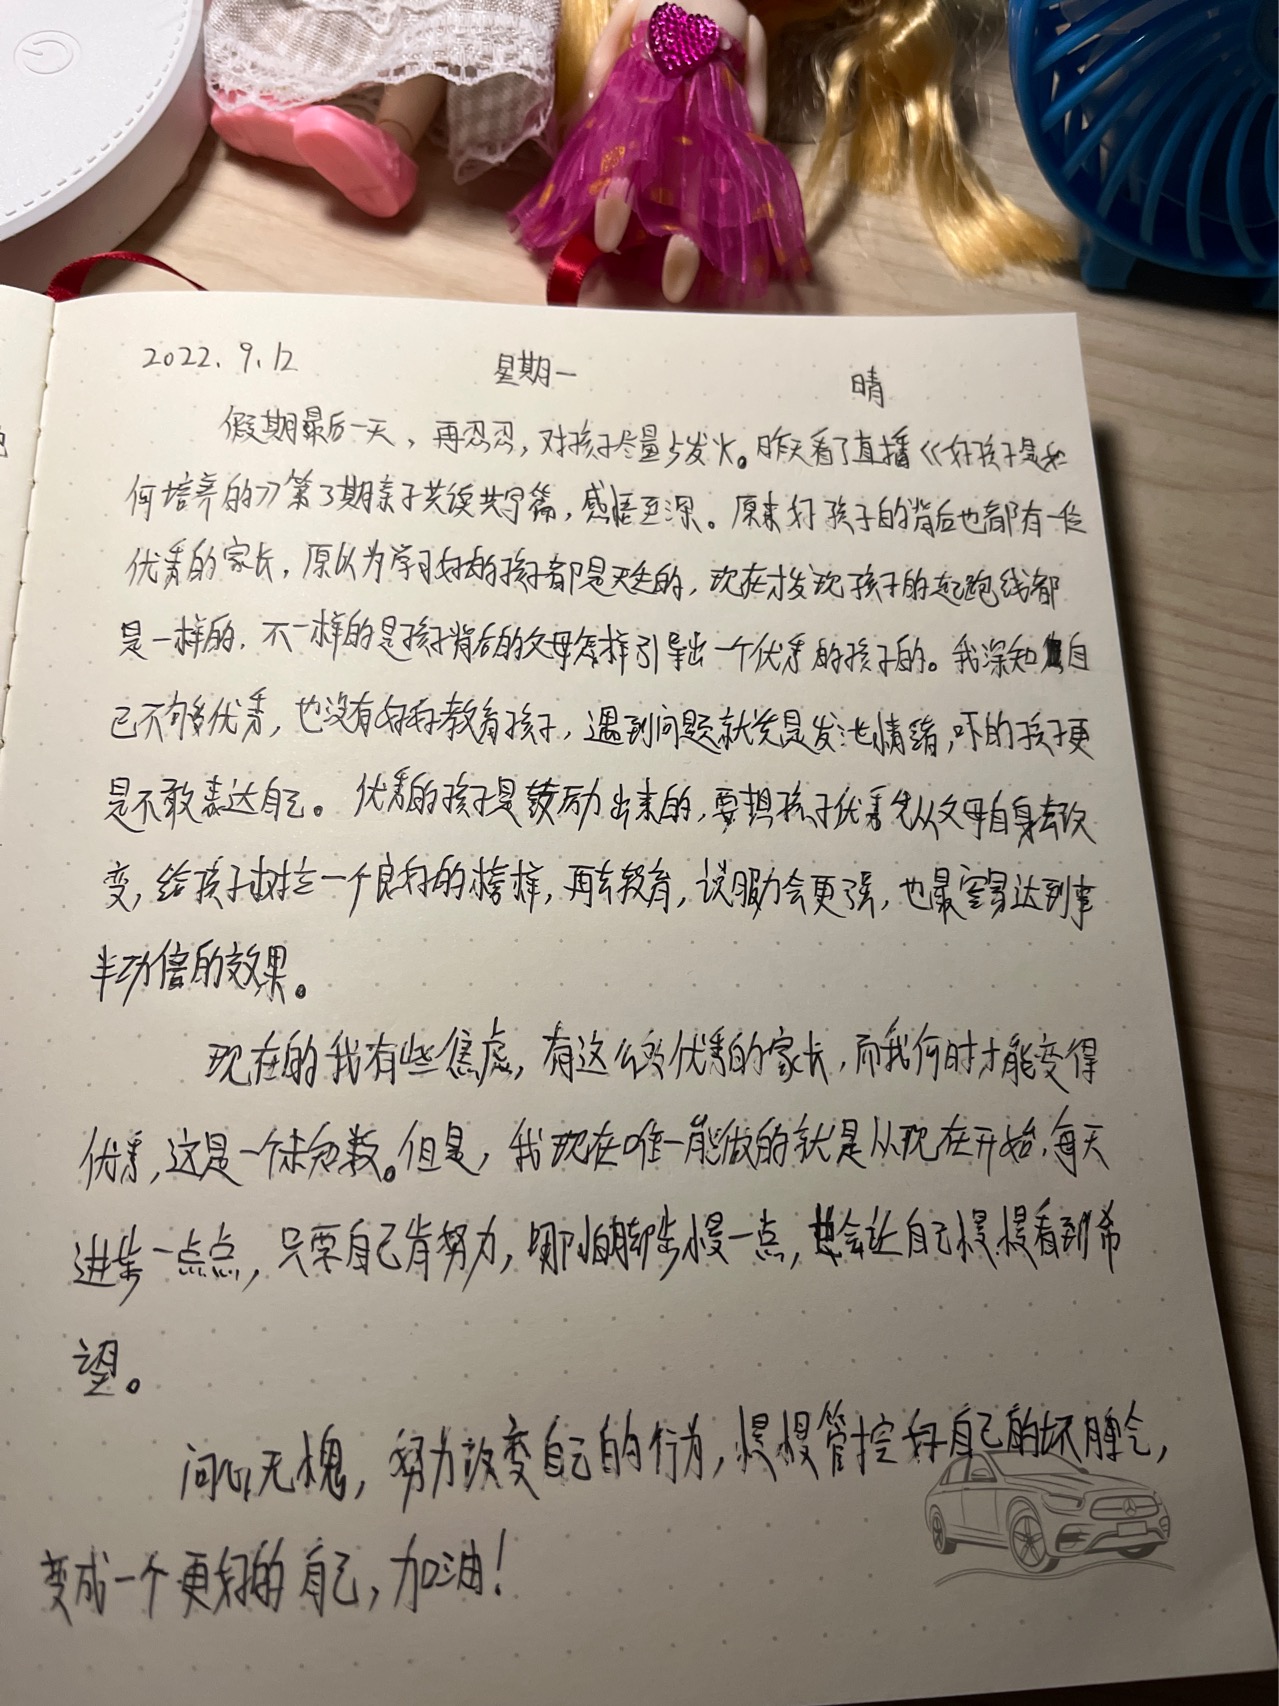 2022.9.12 星期一 晴
假期最后一天，再忍忍，对孩子尽量少发火。昨天看了直播《好孩子是如
何培养的》第3期亲子共读共写篇，感悟至深。原来好孩子的背后也都有一位
优秀的家长，原以为学习好的孩子都是天生的，现在才发现孩子的起跑线都
是一样的，不一样的是孩子背后的父母怎样引导出一个优秀的孩子的。我深知自
己不够优秀，也没有好好教育孩子，遇到问题就总是发泄情绪，吓的孩子更
是不敢表达自己。优秀的孩子是鼓励出来的，要想孩子优秀先从父母自身去改
变，给孩子树立一个良好的榜样，再去教育，说服力会更强，也最容易达到事
半功倍的效果。
现在的我有些焦虑，有这么多优秀的家长，而我何时才能变得
优秀，这是一个未知数。但是，我现在唯一能做的就是从现在开始，每天
进步一点点，只要自己肯努力，哪怕脚步慢一点，也会让自己慢慢看到希
望。
问心无愧，努力改变自己的行为，慢慢管控好自己的坏脾气，
变成一个更好的自己，加油！